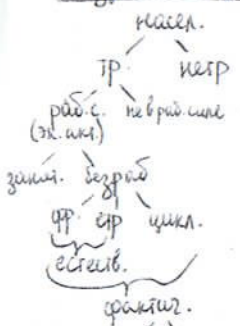 насел.
тр. нетр
раб. с. не в раб. силе
(эк. акт.)
занят. безраб
фр. стр цикл.
естеств.
фактич.